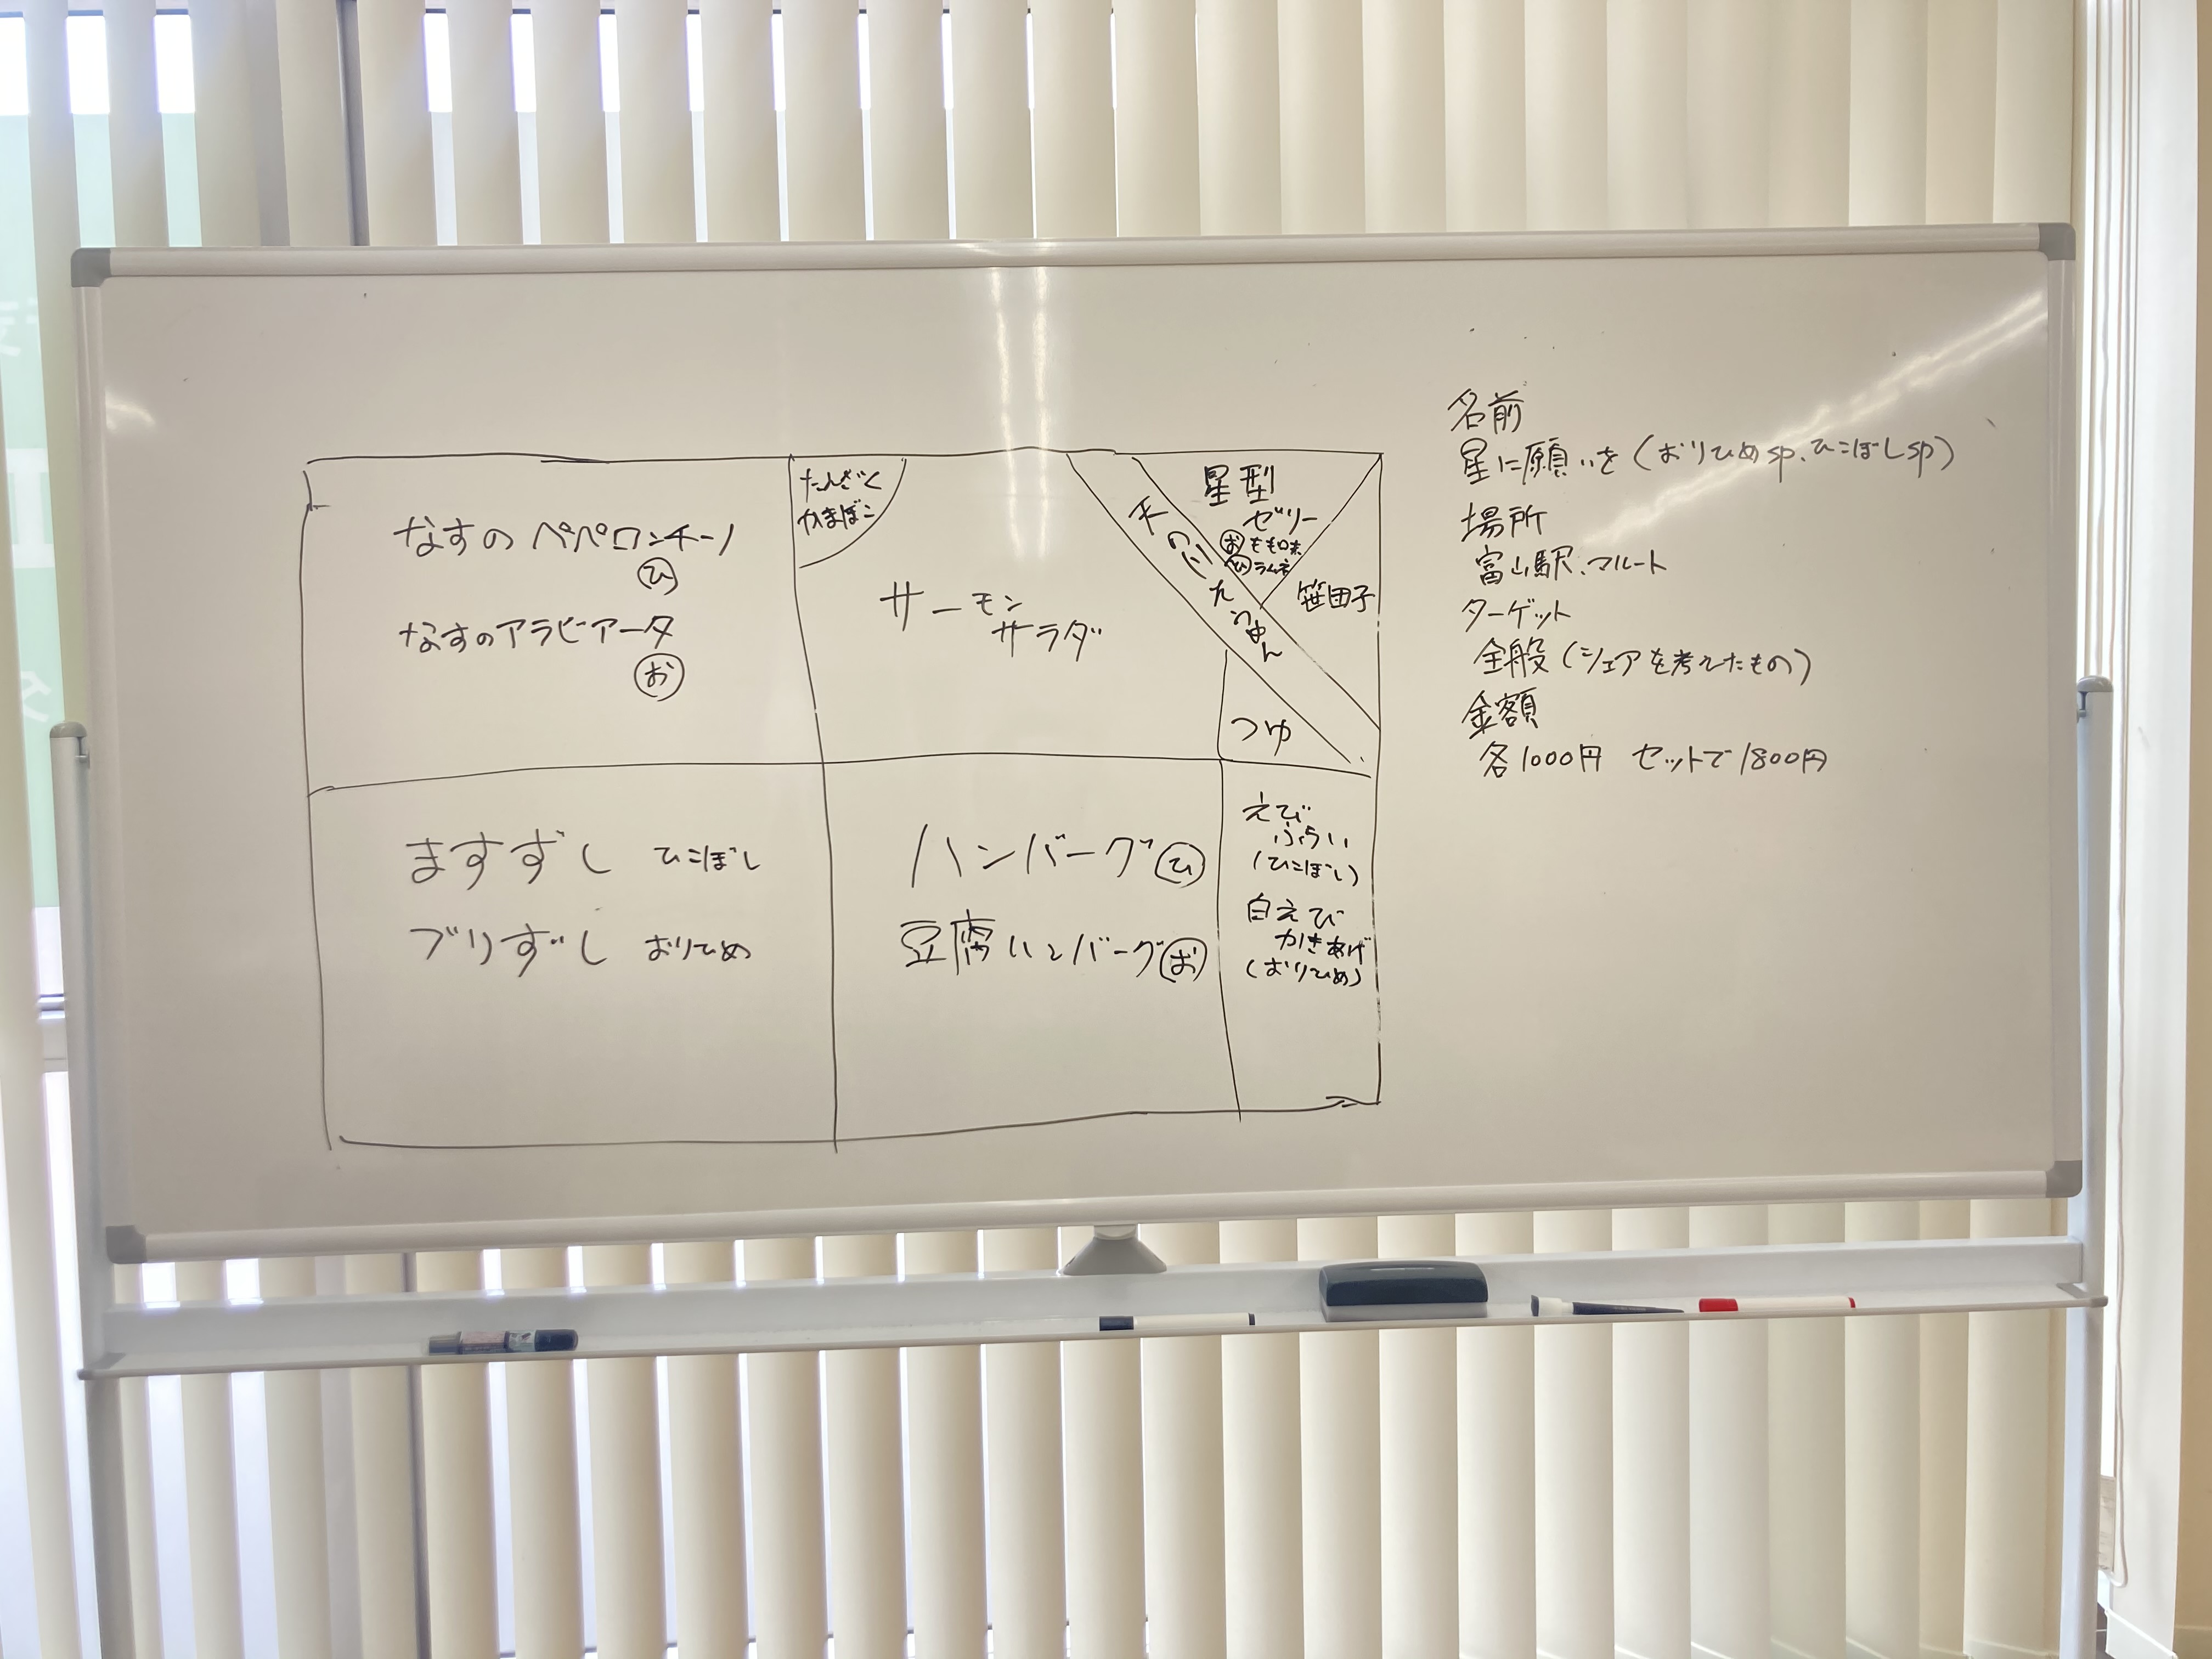 なすのペペロンチーノ
ひ
なすのアラビアータ
お
たんざく
かまぼこ
サーモン
サラダ
天の川そうめん
星型
ゼリー
お もも
ひ ラムネ
笹団子
つゆ
ますずし ひこぼし
ブリずし おりひめ
ハンバーグ ひ
豆腐ハンバーグ お
えび
ふらい
(ひこぼし)
白えび
かきあげ
(おりひめ)
名前
星に願いを(おりひめsp、ひこぼしsp)
場所
富山駅、マルート
ターゲット
全般(シェアを考えたもの)
金額
各1000円 セットで1800円